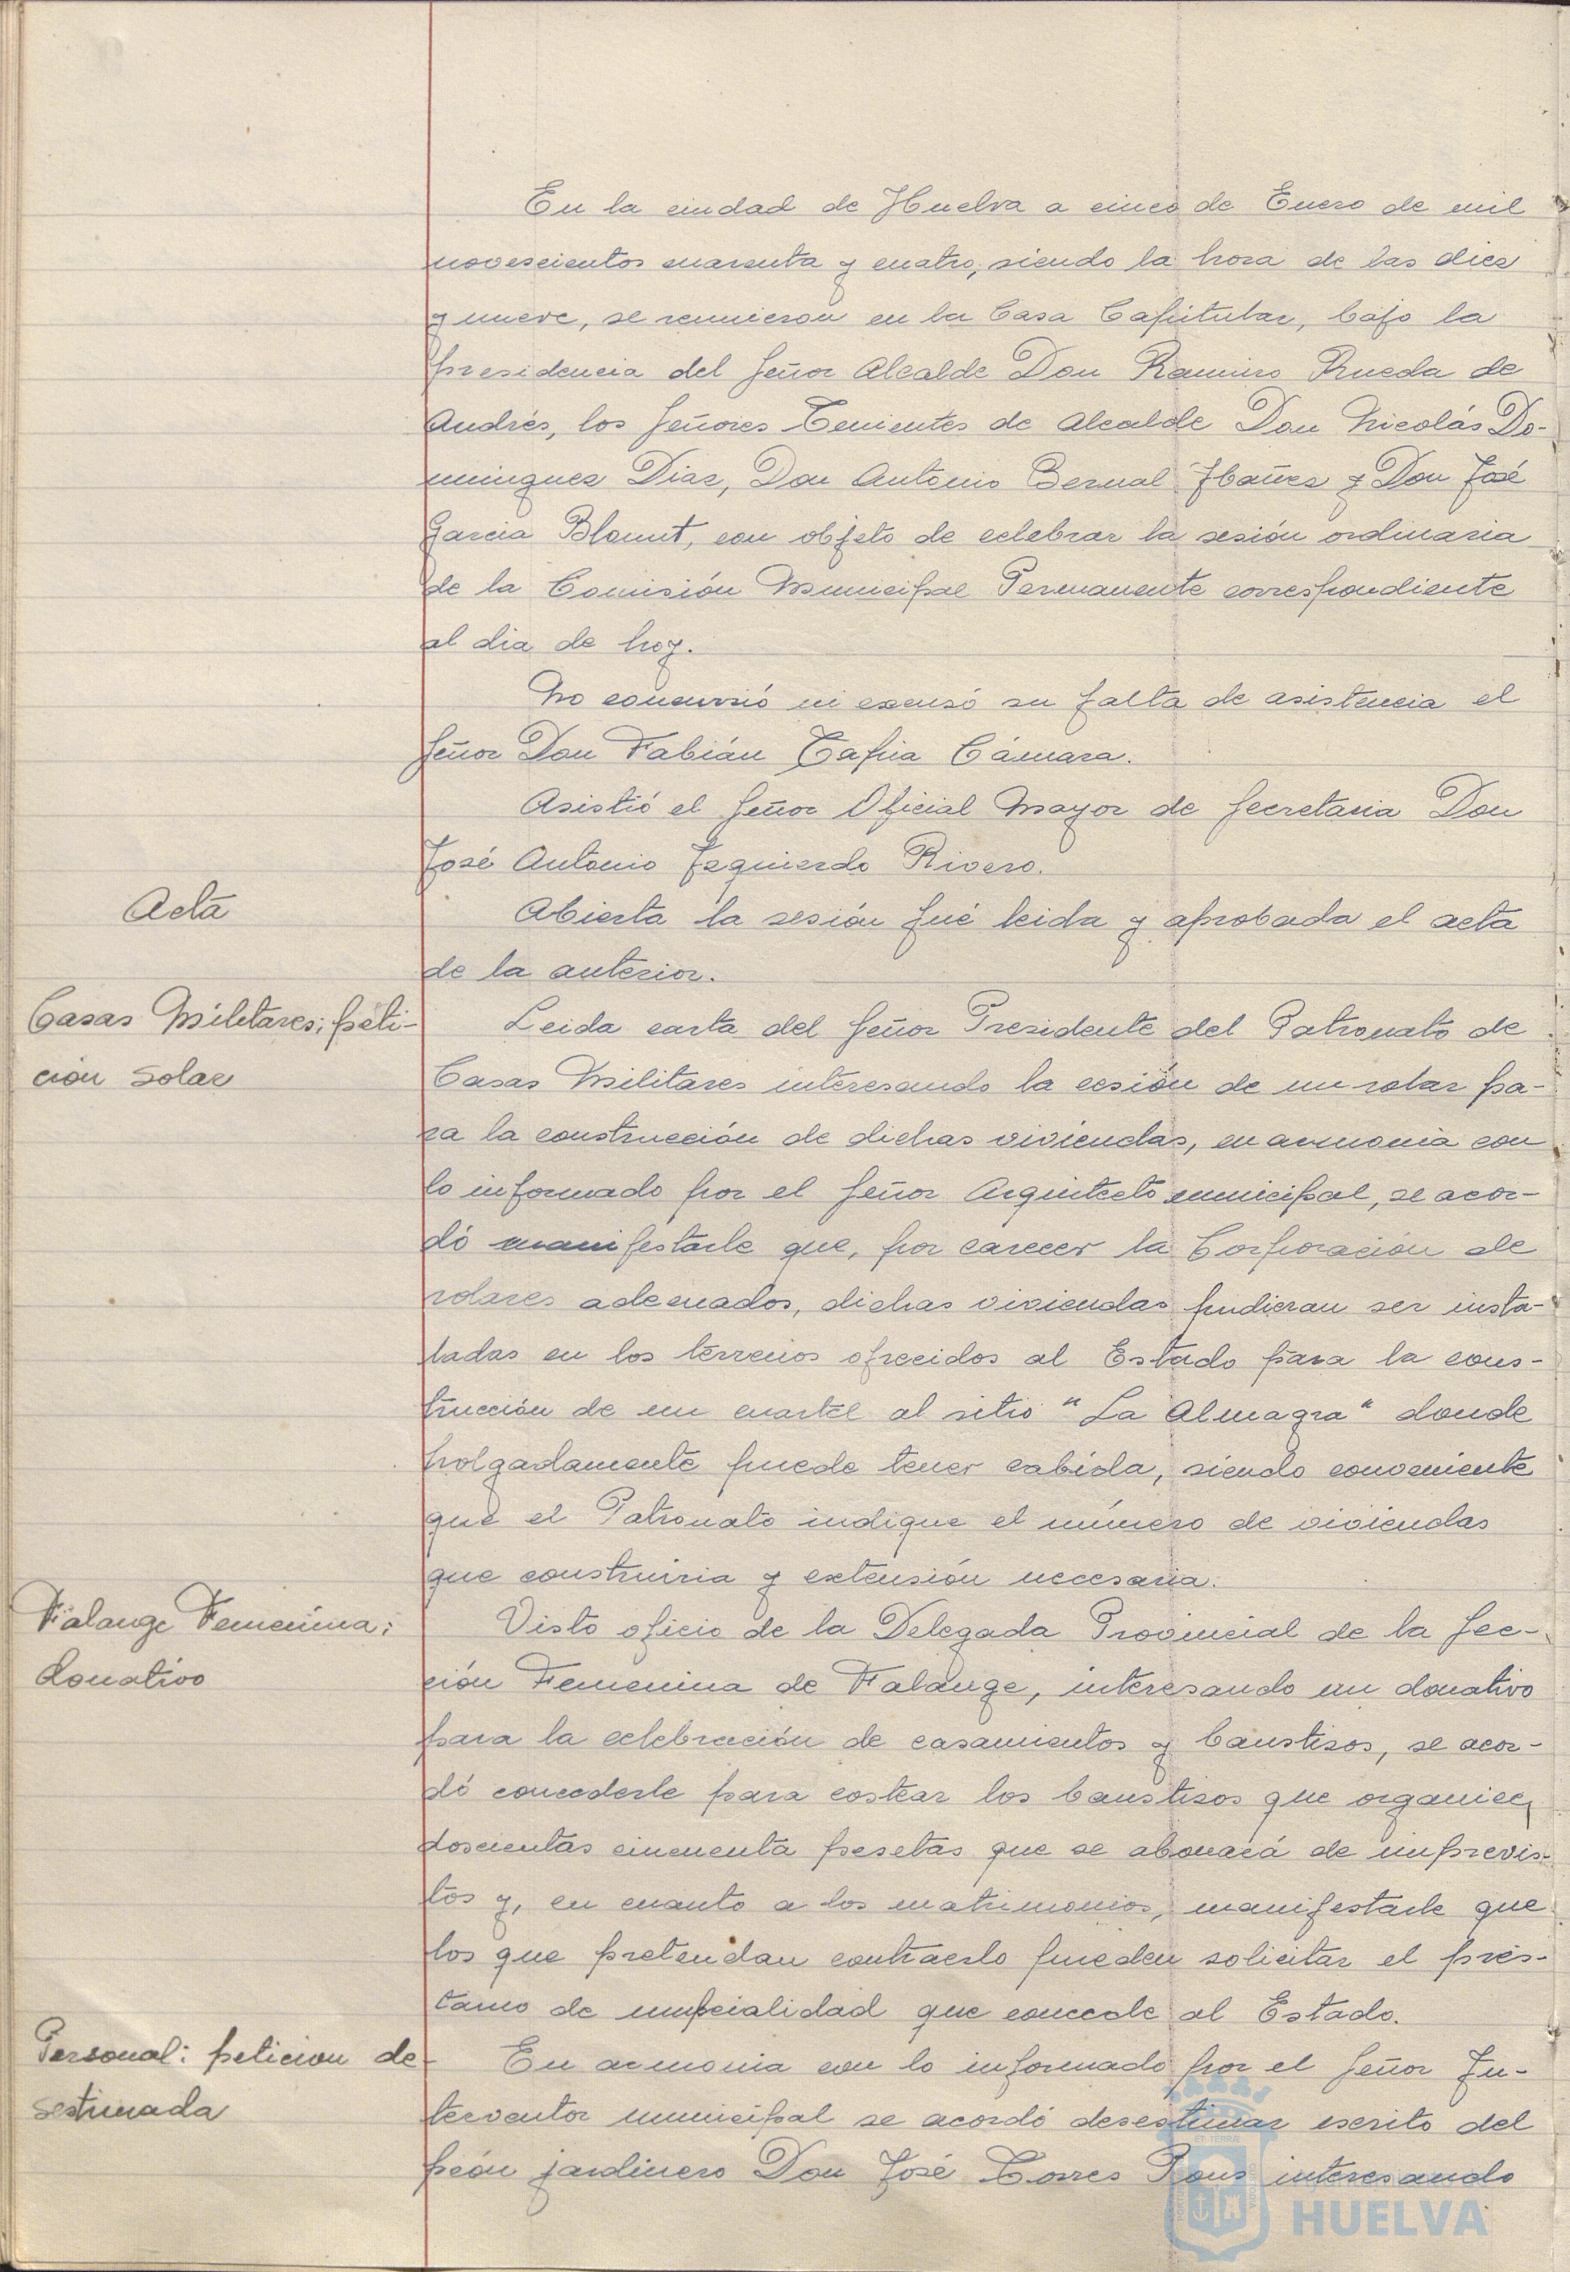 En la ciudad de Huelva a cinco de Enero de mil
novescientos cuarenta y cuatro, siendo la hora de las diez
y nueve, se reunieron en la Casa Capitular, bajo la
presidencia del Señor Alcalde Don Ramiro Rueda de
Andrés, los Señores Tenientes de Alcalde Don Nicolás Do-
minguez Diaz, Don Antonio Bernal Ibañez y Don José
Garcia Blount, con objeto de celebrar la sesión ordinaria
de la Comisión Municipal Permanente correspondiente
al dia de hoy.
No concurrió ni excusó su falta de asistencia el
Señor Don Fabián Tapia Cámara.
Asistió el Señor Oficial Mayor de Secretaria Don
José Antonio Izquierdo Rivero.
Acta
Abierta la sesión fué leida y aprobada el acta
de la anterior.
Casas Militares; peti-
cion solar
Leida carta del Señor Presidente del Patronato de
Casas Militares interesando la cesión de un solar pa-
ra la construcción de dichas viviendas, en armonia con
lo informado por el Señor Arquitecto municipal, se acor-
dó manifestarle que, por carecer la Corporación de
solares adecuados, dichas viviendas pudieran ser insta-
ladas en los terrenos ofrecidos al Estado para la cons-
trucción de un cuartel al sitio "La Almagra" donde
holgadamente puede tener cabida, siendo conveniente
que el Patronato indique el número de viviendas
que construiria y extensión necesaria.
Falange Femenina;
donativo
Visto oficio de la Delegada Provincial de la Sec-
ción Femenina de Falange, interesando un donativo
para la celebración de casamientos y baustisos, se acor-
dó concederle para costear los baustisos que organice,
doscientas cincuenta pesetas que se abonará de imprevis-
tos y, en cuanto a los matrimonios, manifestarle que
los que pretendan contraerlo pueden solicitar el prés-
tamo de nupcialidad que concede al Estado.
Personal: peticion de-
sestimada
En armonia con lo informado por el Señor In-
terventor municipal se acordó desestimar escrito del
peón jardinero Don José Torres Pons interesando
HUELVA